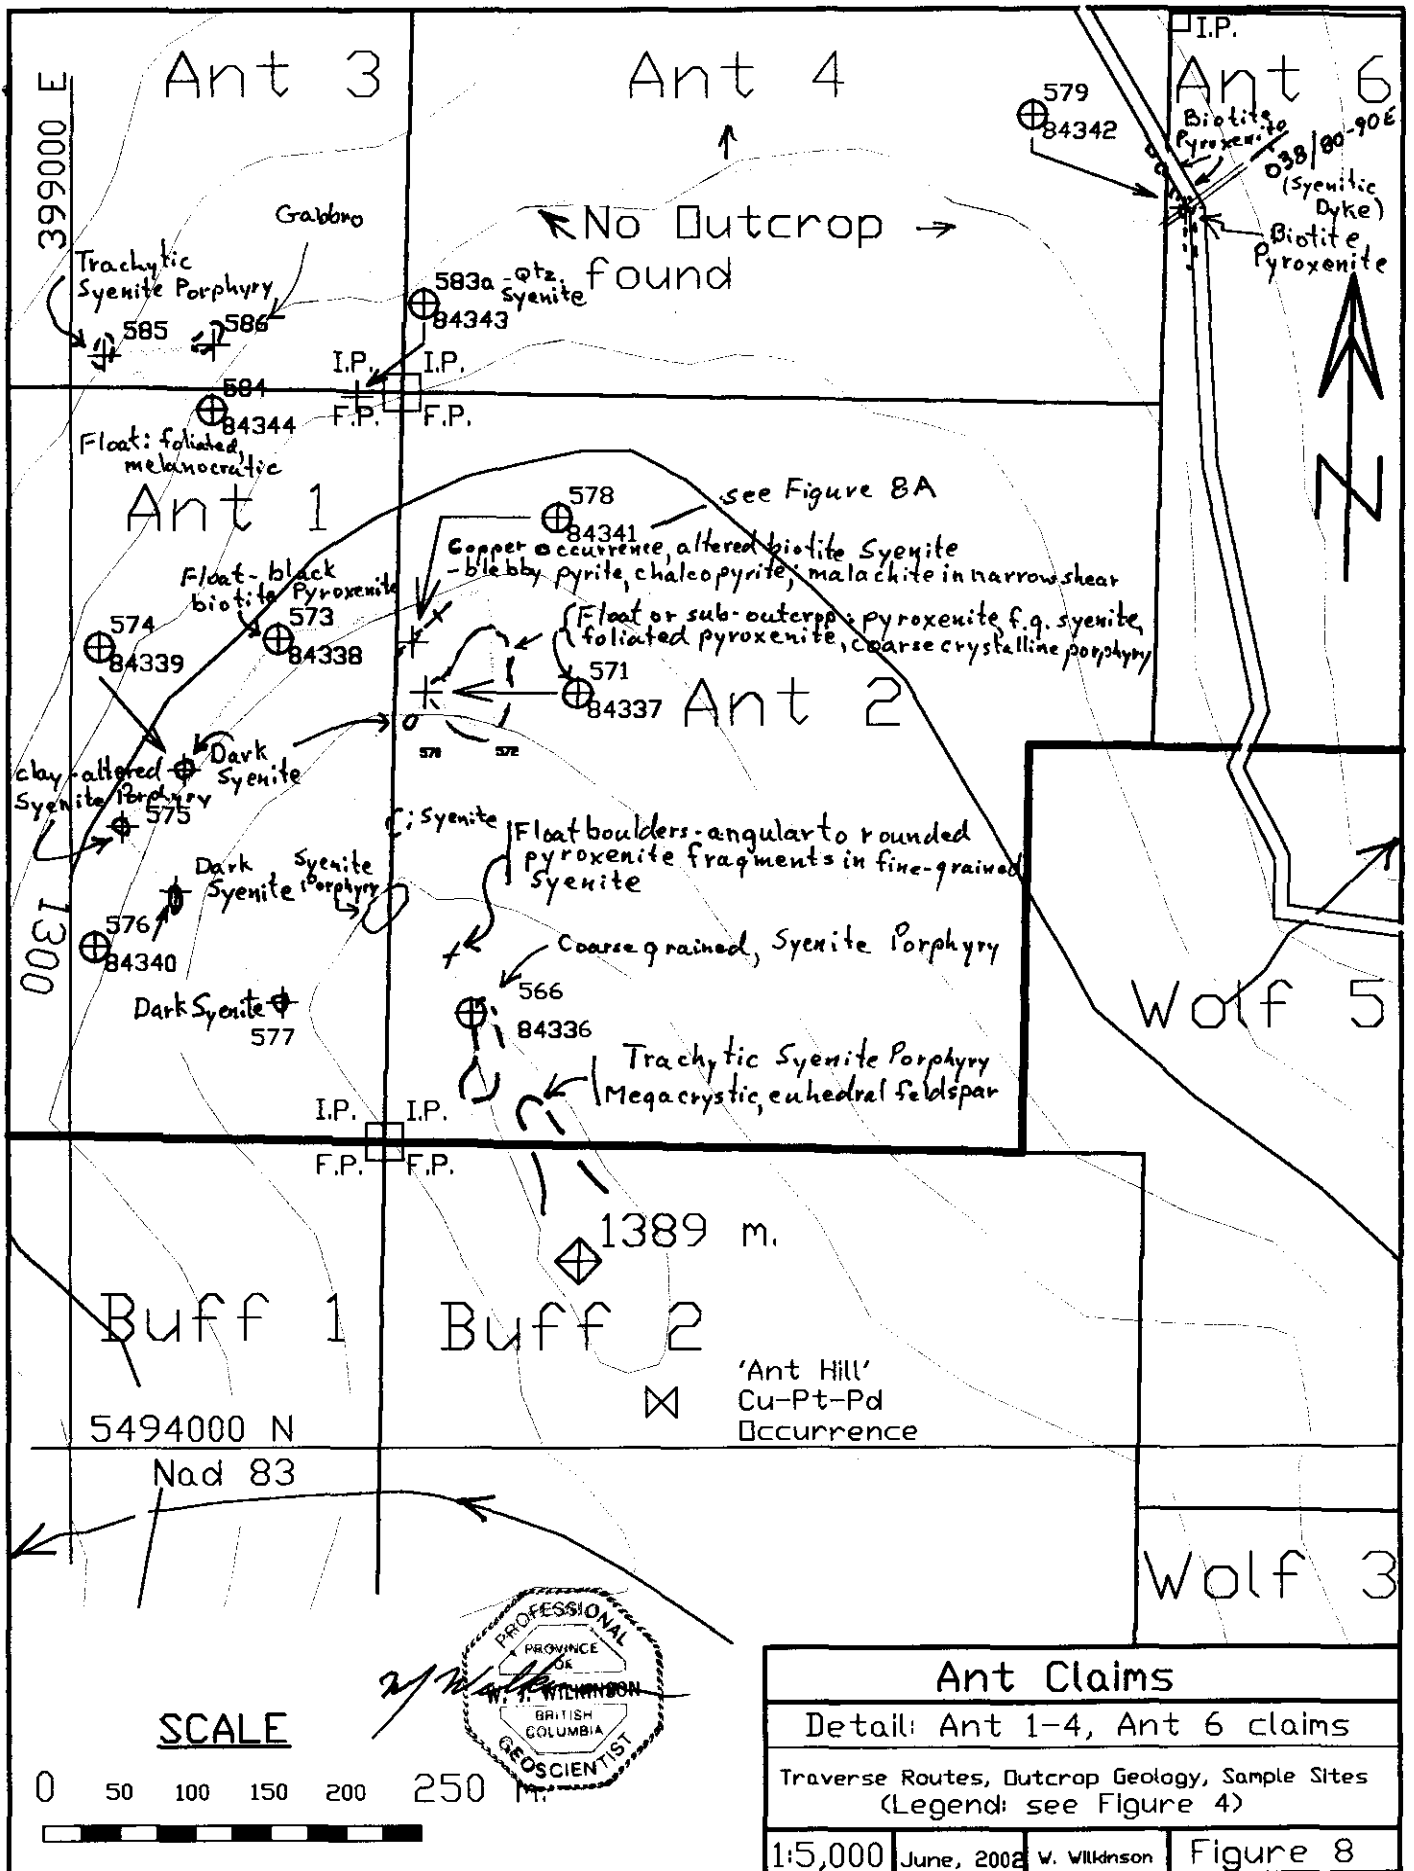 Ant 3
Ant 4
I.P.
Ant 6
399000 E
579
84342
Biotite
Pyroxenite
038/80-90E
(Syenitic
Dyke)
Biotite
Pyroxenite
Gabbro
No Outcrop
found
Trachytic
Syenite Porphyry
585
586
583a - Qtz.
Syenite
84343
I.P.
I.P.
F.P.
F.P.
584
84344
Float: foliated,
melanocratic
Ant 1
578
84341
see Figure 8A
Copper occurrence, altered biotite Syenite
- blebby pyrite, chalcopyrite; malachite in narrow shear
Float - black
biotite Pyroxenite
573
84338
574
84339
Float or sub-outcrop: pyroxenite, f.g. syenite,
foliated pyroxenite, coarse crystalline porphyry
571
84337
Ant 2
570
572
Dark
Syenite
clay-altered
Syenite Porphyry
575
Syenite
Float boulders - angular to rounded
pyroxenite fragments in fine-grained
Syenite
Dark
Syenite
Syenite
Porphyry
576
84340
1300
Coarse grained, Syenite Porphyry
566
84336
Dark Syenite
577
Wolf 5
Trachytic Syenite Porphyry
Megacrystic, euhedral feldspar
I.P.
I.P.
F.P.
F.P.
1389 m.
Buff 1
Buff 2
'Ant Hill'
Cu-Pt-Pd
Occurrence
5494000 N
Nad 83
Wolf 3
PROFESSIONAL
PROVINCE
OF
W. J. WILKINSON
BRITISH
COLUMBIA
GEOSCIENTIST
SCALE
0 50 100 150 200 250 M.
Ant Claims
Detail: Ant 1-4, Ant 6 claims
Traverse Routes, Outcrop Geology, Sample Sites
(Legend: see Figure 4)
1:5,000
June, 2002
W. Wilkinson
Figure 8